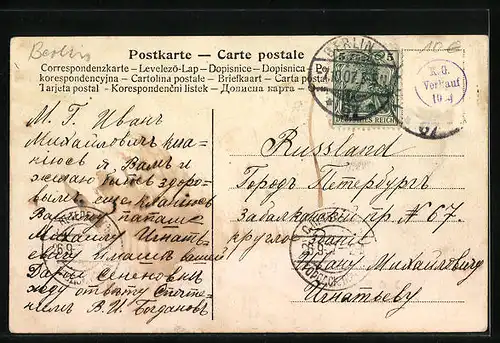 Berlin
10 €
Postkarte — Carte postale
Correspondenzkarte - Levelező-Lap - Dopisnice - Dopisnica -
korespondencyjna - Cartolina postale - Briefkaart - Carta postal
Tarjeta postal - Korespondenční listek - Дописна карта
BERLIN
DEUTSCHES REICH
K.G.
Verkauf
М. Г. Иванъ
Михайловичъ кла-
нїюсь я Вамъ и
желаю быть здоро-
вымъ еще кланїюсь
Вашему папаше
Михаилу Игнать-
евичу и мамаше вашей
Дарьи Семеновны
жду ответу С почте-
нием В. И. Богдановъ
Russland
Городъ Петербургъ
Забалканский пр. № 67.
Ивану Михайловичу
Игнатьеву